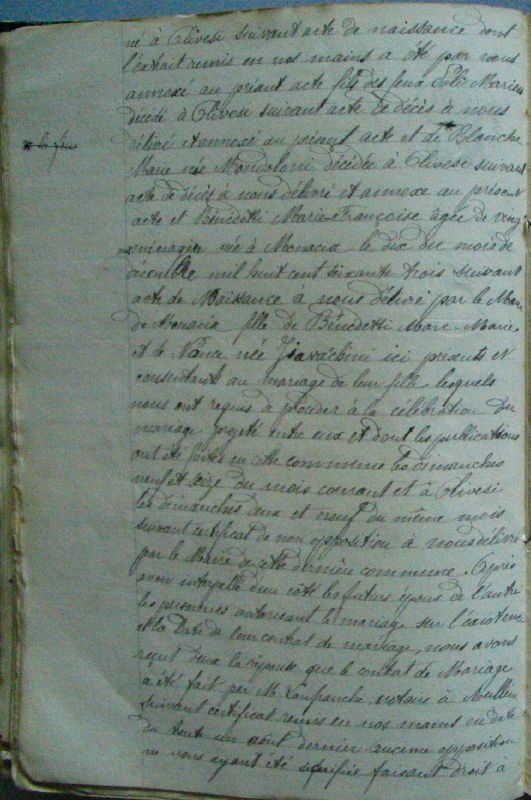 né à Olivese suivant acte de naissance dont
l'extrait remis en nos mains a été par nous
annexé au présent acte fils des feux Poli Marien
décédé à Olivese suivant acte de décès à nous
délivré et annexé au présent acte et de Blanche
Marie née Mondoloni décédée à Olivese suivant
acte de décès à nous délivré et annexé au présent
acte et Bénedetti Marie-Françoise âgée de vingt
ménagère née à Monacia le dix du mois de
décembre mil huit cent soixante trois suivant
acte de Naissance à nous délivré par le Maire
de Monacia fille de Bénedetti Marc-Marie
et de née ici présents et
consentant au mariage de leur fille lesquels
nous ont requis à procéder à la célébration du
mariage projeté entre eux et dont les publications
ont été faites en cette commune les dimanches
neuf et seize du mois courant et à Olivesi
les dimanches deux et neuf du même mois
suivant certificat de non opposition à nous délivré
par le Maire de cette dernière commune. Après
avoir interpellé d'un côté les futurs époux de l'autre
les personnes autorisant le mariage sur l'existence
et la Date de leur contrat de mariage, nous avons
reçu d'eux la réponse que le contrat de Mariage
a été fait par M. notaire à
suivant certificat remis en nos mains en date
du août dernier aucune opposition
ne nous ayant été signifiée faisant droit à